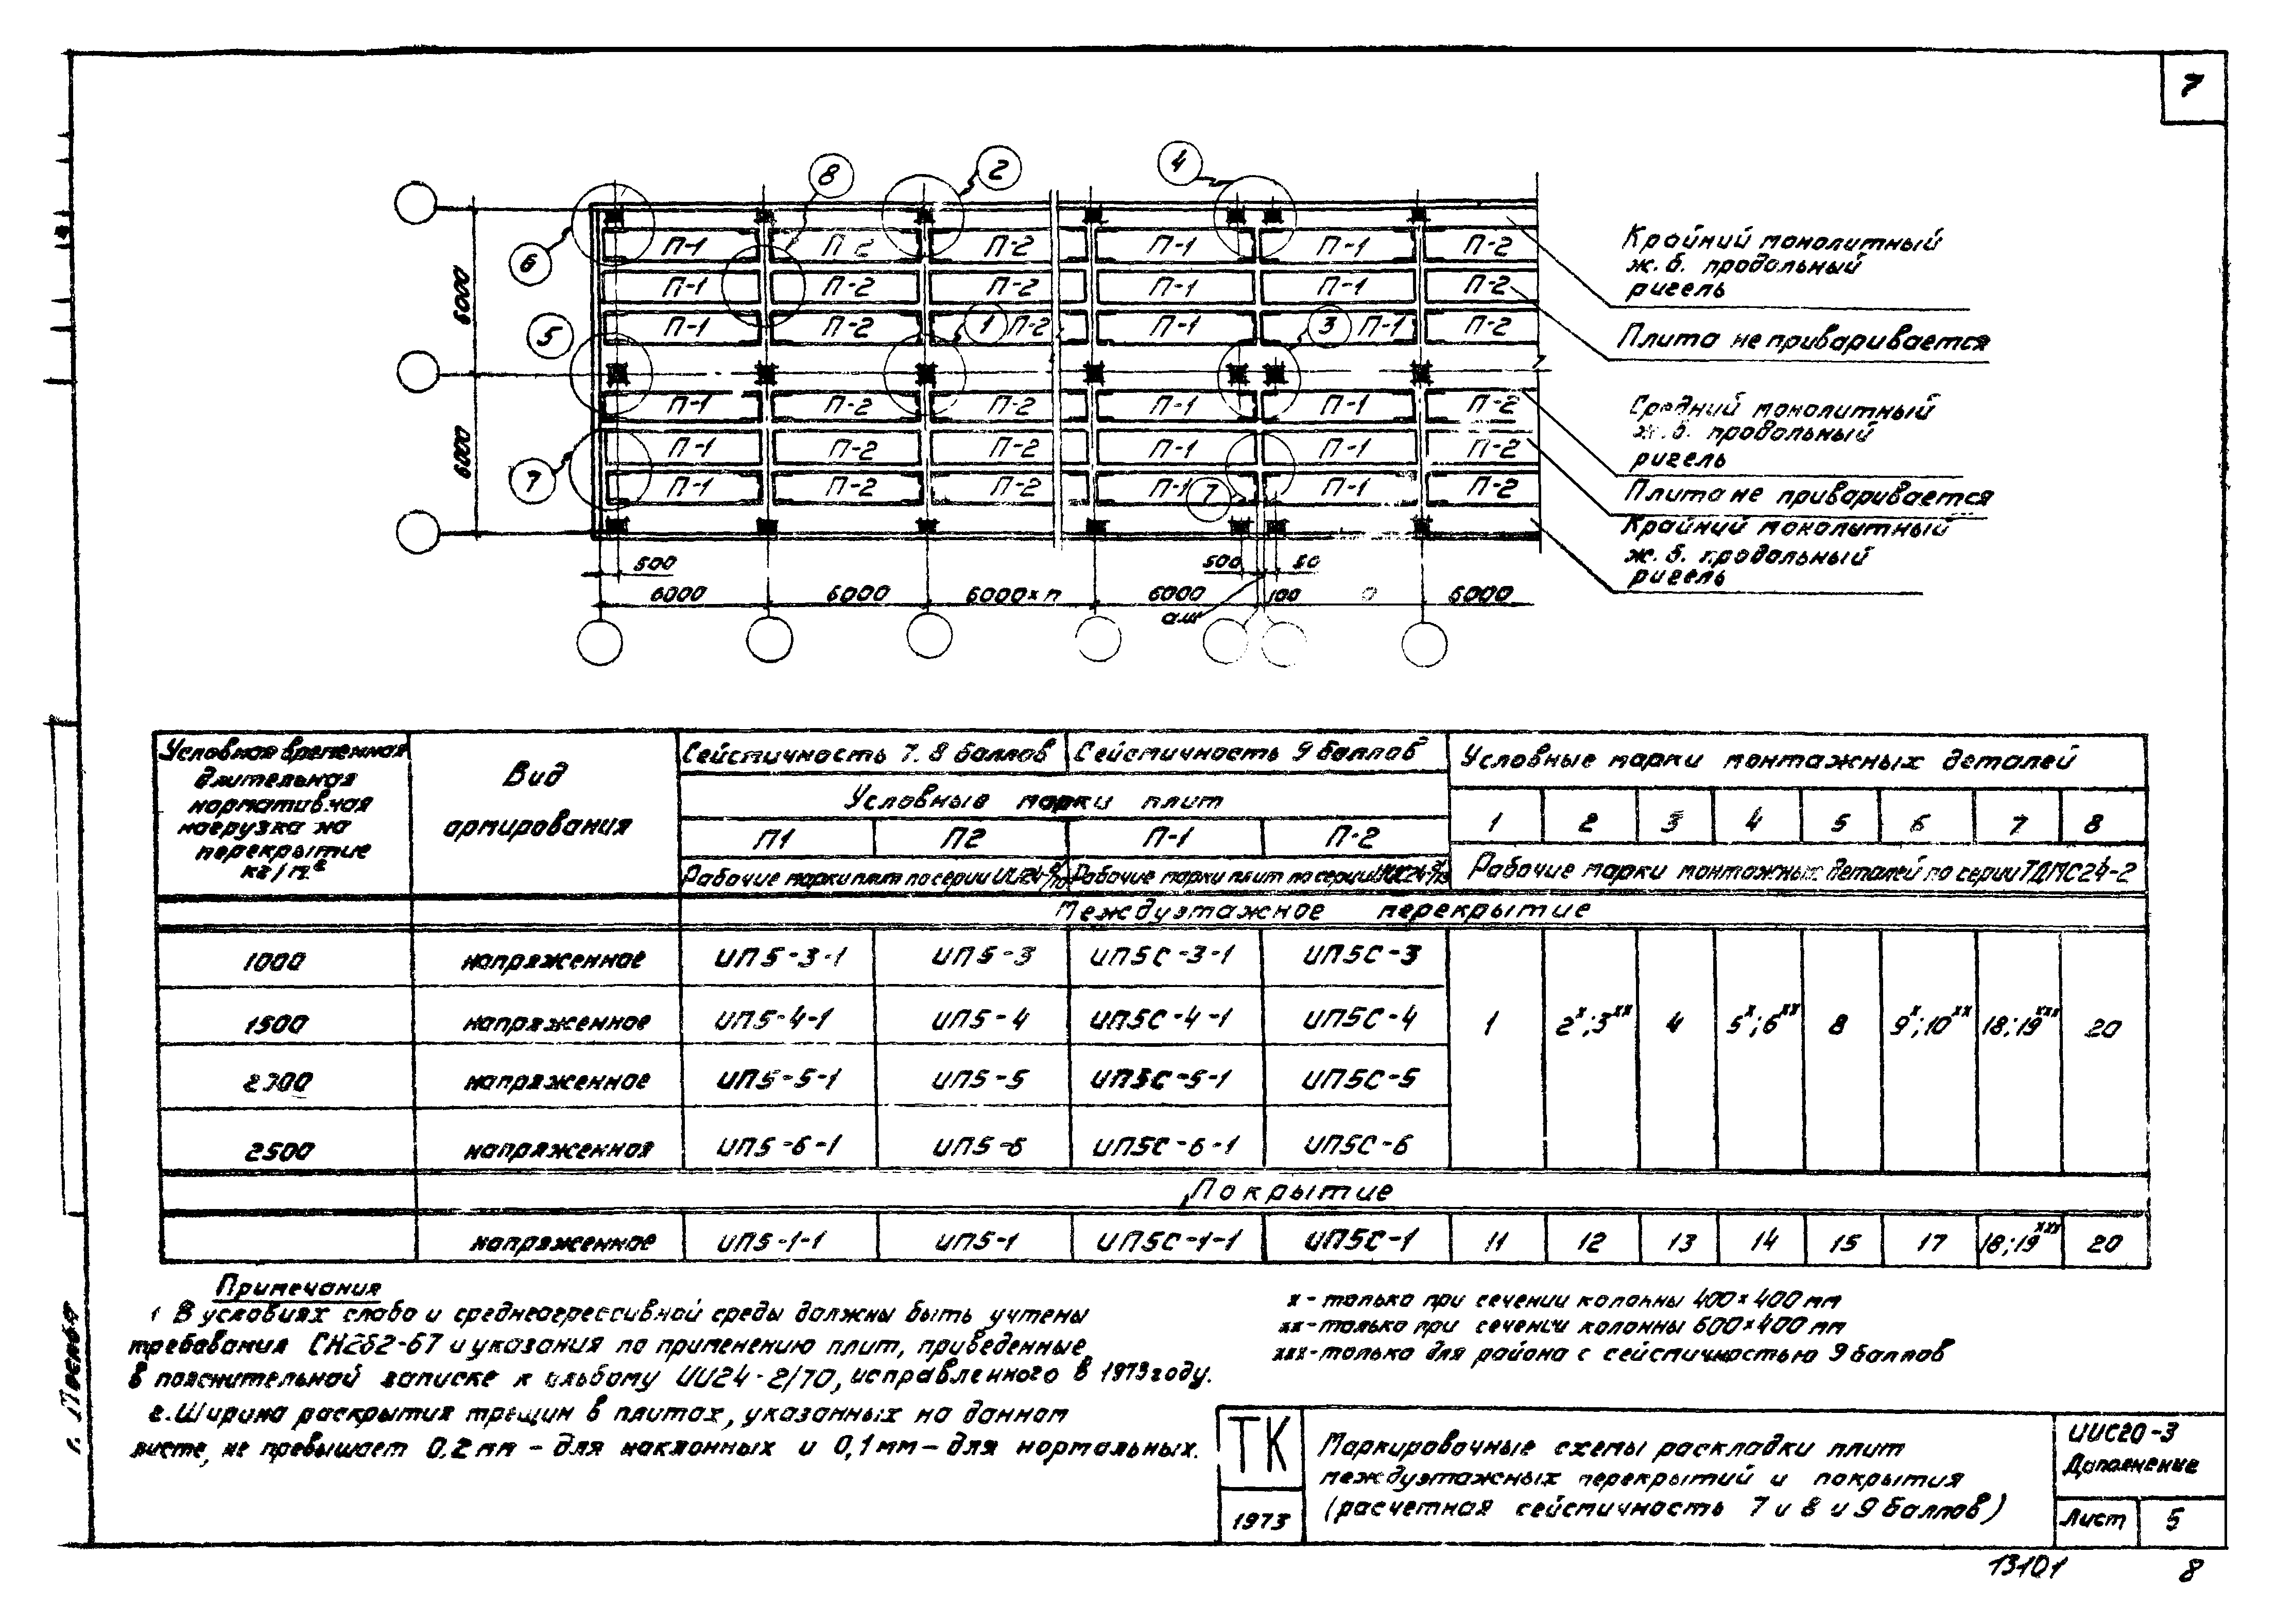 7
8 2 4
6 5 7 1 3 7
П-1 П-2 П-2 П-1 П-1 П-2
П-1 П-2 П-2 П-1 П-1 П-2
П-1 П-2 П-2 П-1 П-1 П-2
П-1 П-2 П-2 П-1 П-1 П-2
П-1 П-2 П-2 П-1 П-1 П-2
П-1 П-2 П-2 П-1 П-1 П-2
6000
6000
500 500 50
6000 6000 6000×п 6000 100 6000
а.ш
Крайний монолитный
ж.б. продольный
ригель
Плита не приваривается
Средний монолитный
ж.б. продольный
ригель
Плита не приваривается
Крайний монолитный
ж.б. продольный
ригель
Условная временная
длительная
нормативная
нагрузка на
перекрытие
кг/м²
Вид
армирования
Сейсмичность 7. 8 баллов
Сейсмичность 9 баллов
Условные марки монтажных деталей
Условные марки плит
П1 П2 П-1 П-2
1 2 3 4 5 6 7 8
Рабочие марки плит по серии
Рабочие марки плит по серии
Рабочие марки монтажных деталей по серии ТДМС24-2
Междуэтажное перекрытие
1000 напряженное ИП5-3-1 ИП5-3 ИП5С-3-1 ИП5С-3
1500 напряженное ИП5-4-1 ИП5-4 ИП5С-4-1 ИП5С-4 1 2ˣ;3ˣˣ 4 5ˣ;6ˣˣ 8 9ˣ;10ˣˣ 18;19ˣˣˣ 20
напряженное ИП5-5-1 ИП5-5 ИП5С-5-1 ИП5С-5
2500 напряженная ИП5-6-1 ИП5-6 ИП5С-6-1 ИП5С-6
Покрытие
напряженное ИП5-1-1 ИП5-1 ИП5С-1-1 ИП5С-1 11 12 13 14 15 17 18;19ˣˣˣ 20
Примечания
1 В условиях слабо и среднеагрессивной среды должны быть учтены
требования СН262-67 и указания по применению плит, приведенные
в пояснительной записке к альбому ИИ24-2/70, исправленного в 1973 году.
2. Ширина раскрытия трещин в плитах, указанных на данном
листе, не превышает 0.2 мм – для наклонных и 0,1 мм – для нормальных.
х - только при сечении колонны 400×400 мм
хх - только при сечении колонны 600×400 мм
ххх - только для района с сейсмичностью 9 баллов
ТК
1973
Маркировочные схемы раскладки плит
междуэтажных перекрытий и покрытия
(расчетная сейсмичность 7 и 8 и 9 баллов)
ИИС20-3
Дополнение
Лист 5
13101 8